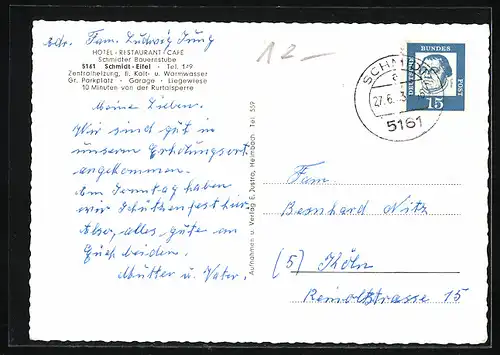 Adr. Fam. Ludwig Jung
HOTEL · RESTAURANT · CAFE
Schmidter Bauernstube
5161 Schmidt-Eifel · Tel. 149
Zentralheizung, fl. Kalt- u. Warmwasser
Gr. Parkplatz · Garage · Liegewiese
10 Minuten von der Rurtalsperre
Meine Lieben.
Wir sind gut in
unseren Erholungsort
angekommen.
Am Sonntag haben
wir Schützenfest hier
Also, alles gute an
Euch beiden.
Mutter u. Vater.
Aufnahmen u. Verlag E. Justra, Heimbach Tel. 559
12-
SCHMIDT
a
27.6.
5161
DEUTSCHE BUNDESPOST
15
Fam.
Bernhard Nitz
(5) Köln
Reinoldstrasse 15